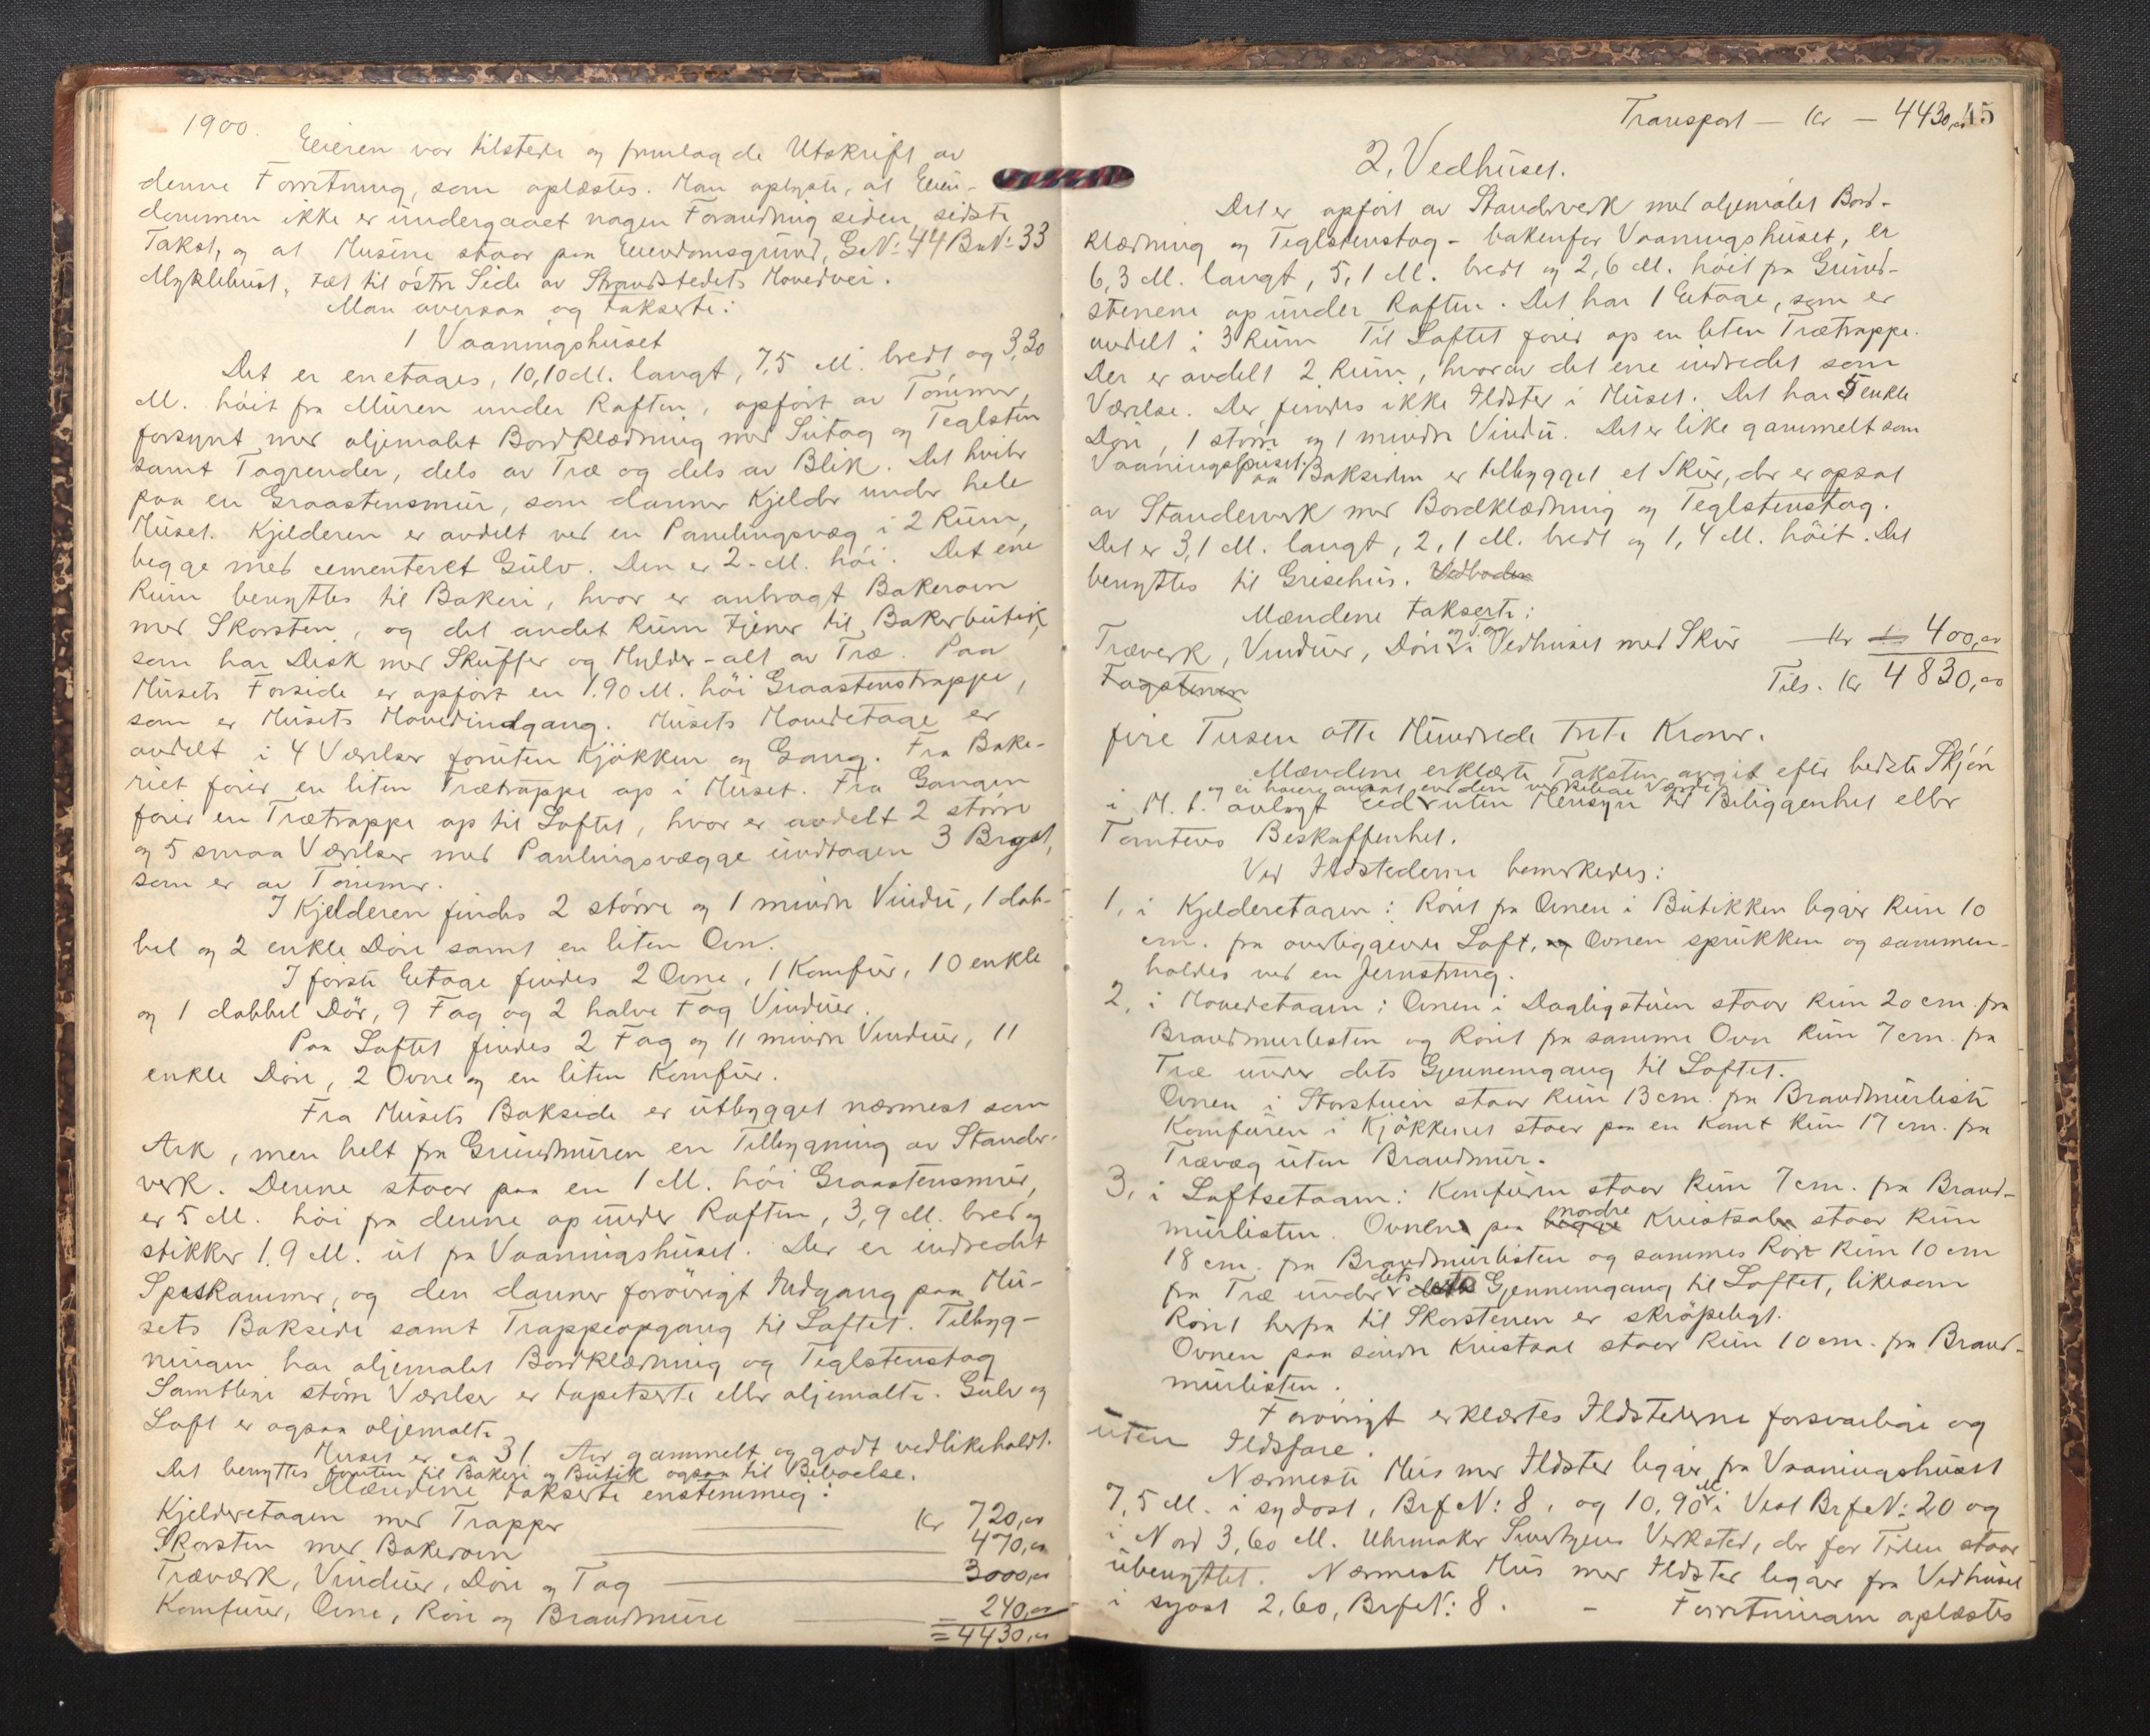 1900.
Eieren var tilstede og fremlagde Utskrift av
denne Forretning, som oplæstes. Man oplyste, at Eien-
dommen ikke er undergaaet nogen Forandring siden sidste
Takst, og at Husene staar paa Eiendomsgrund, G.N: 44 B.N: 33
Myklebust, tæt til østre Side av Strandstedets Hovedvei.
Man oversaa og takserte:
1 Vaaningshuset
Det er enetages, 10,10 M. langt, 7,5 M. bredt og 3,30
M. høit fra Muren under Raften, opført av Tømmer,
forsynt med oljemalet Bordklædning med Sutag og Teglsten
samt Tagrender, dels av Træ og dels av Blik. Det hviler
paa en Graastensmur, som danner Kjelder under hele
Huset. Kjelderen er avdelt ved en Panelingsvæg i 2 Rum,
begge med cementeret Gulv. Den er 2 M. høi. Det ene
Rum benyttes til Bakeri, hvor er anbragt Bakerovn
med Skorsten, og det andet Rum tjener til Bakerbutik,
som har Disk med Skuffer og Hylder - alt av Træ. Paa
Husets Forside er opført en 1.90 M. høi Graastenstrappe,
som er Husets Hovedindgang. Husets Hovedetage er
avdelt i 4 Værelser foruten Kjøkken og Gang. Fra Bake-
riet fører en liten Trætrappe op i Huset. Fra Gangen
fører en Trætrappe op til Loftet, hvor er avdelt 2 større
og 5 smaa Værelser med Panelingsvægge undtagen 3 Bryst,
som er av Tømmer.
I Kjelderen findes 2 større og 1 mindre Vindu, 1 dob-
bel og 2 enkle Døre samt en liten Ovn.
I første Etage findes 2 Ovne, 1 Komfur, 10 enkle
og 1 dobbel Dør, 9 Fag og 2 halve Fag Vinduer.
Paa Loftet findes 2 Fag og 11 mindre Vinduer, 11
enkle Døre, 2 Ovne og en liten Komfur.
Fra Husets Bakside er utbygget nærmest som
Ark, men helt fra Grundmuren en Tilbygning av Stander-
verk. Denne staar paa en 1 M. høi Graastensmur,
er 5 M. høi fra denne op under Raften, 3,9 M. bred og
stikker 1.9 M. ut fra Vaaningshuset. Der er indredet
Speiskammer, og den danner forøvrigt Indgang paa Hu-
sets Bakside samt Trappeopgang til Loftet. Tilbyg-
ningen har oljemalet Bordklædning og Teglstenstag
Samtlige større Værelser er tapetserte eller oljemalte. Gulv og
Loft er ogsaa oljemalte
Huset er ca 31 Aar gammelt og godt vedlikeholdt.
Det benyttes foruten til Bakeri og Butik ogsaa til Beboelse.
Mændene takserte enstemmig:
Kjelderetagen med Trapper Kr 720,00
Skorsten med Bakerovn 470,00
Træværk, Vinduer, Døre og Tag 3000,00
Komfurer, Ovne, Rør og Brandmure 240,00
= 4430,00
Transport — Kr — 4430,00 45
2. Vedhuset.
Det er opført av Standerverk med oljemalet Bord-
klædning og Teglstenstag - bakenfor Vaaningshuset, er
6,3 M. langt, 5,1 M. bredt og 2,6 M. høit fra Grund-
stenene op under Raften. Det har 1 Etage, som er
avdelt i 3 Rum Til Loftet fører op en liten Trætrappe.
Der er avdelt 2 Rum, hvorav det ene indredet som
Værelse. Der findes ikke Ildster i Huset. Det har 5 enkle
Døre, 1 større og 1 mindre Vindu. Det er like gammelt som
Vaaningshuset. Paa Baksiden er tilbygget et Skur, der er opsat
av Standerverk med Bordklædning og Teglstenstag.
Det er 3,1 M. langt, 2,1 M. bredt og 1,4 M. høit. Det
benyttes til Grisehus. Vedboden
Mændene takserte:
Træverk, Vinduer, Døre og Tag i Vedhuset med Skur Kr 400,00
Tagstenen Tils. Kr 4830,00
fire Tusen otte Hundrede treti Kroner.
Mændene erklærte Taksten avgit efter bedste Skjøn
og ei høiere ansat end den virkelige Værdi
i H. t. avlagt Eed uten Hensyn til Beliggenhet eller
Tomtens Beskaffenhet.
Ved Ildstederne bemerkedes:
1, i Kjelderetagen: Røret fra Ovnen i Butikken ligger kun 10
cm. fra overliggende Loft, og Ovnen sprukken og sammen-
holdes ved en Jernstreng.
2, i Hovedetagen: Ovnen i Dagligstuen staar kun 20 cm. fra
Brandmurlisten og Røret fra samme Ovn kun 7 cm. fra
Træ under dets Gjennemgang til Loftet.
Ovnen i Storstuen staar kun 13 cm. fra Brandmurliste
Komfuren i Kjøkkenet staar paa en Kant kun 17 cm. fra
Trævæg uten Brandmur.
3, i Loftsetagen: Komfuren staar kun 7 cm. fra Brand-
murlisten. Ovnen paa begge nordre Kvistsal staar kun
18 cm. fra Brandmurlisten og sammes Rør kun 10 cm
fra Træ under dets Gjennemgang til Loftet, likesom
Røret herfra til Skorstenen er skrøpeligt.
Ovnen paa søndre Kvistsal staar kun 10 cm. fra Brand-
murlisten.
Forøvrigt erklærtes Ildstederne forsvarlige og
uten Ildsfare.
Nærmeste Hus med Ildster ligger fra Vaaningshuset
7,5 M. i sydost, Brf N: 8, og 10,90 M i Vest Brf N: 20 og
i Nord 3,60 M. Uhrmaker Verksted, der for Tiden staar
ubenyttet. Nærmeste Hus med Ildster ligger fra Vedhuset
i syost 2,60, Brf N: 8. - Forretningen oplæstes